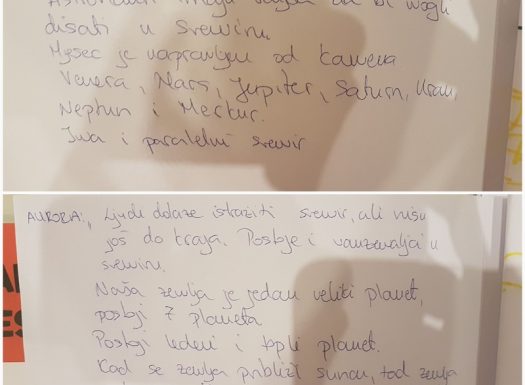 Astronauti imaju
da bi mogli
disati u svemiru.
Mjesec je napravljen od kamena
Venera, Mars, Jupiter, Saturn, Uran,
Neptun i Merkur.
Ima i paralelni svemir
AURORA: Ljudi dolaze istražiti svemir, ali nisu
još do kraja. Postoje i vanzemaljci u
svemiru.
Naša zemlja je jedan veliki planet,
postoji 7 planeta
Postoji ledeni i topli planet.
Kad se zemlja približi suncu, tad zemlja